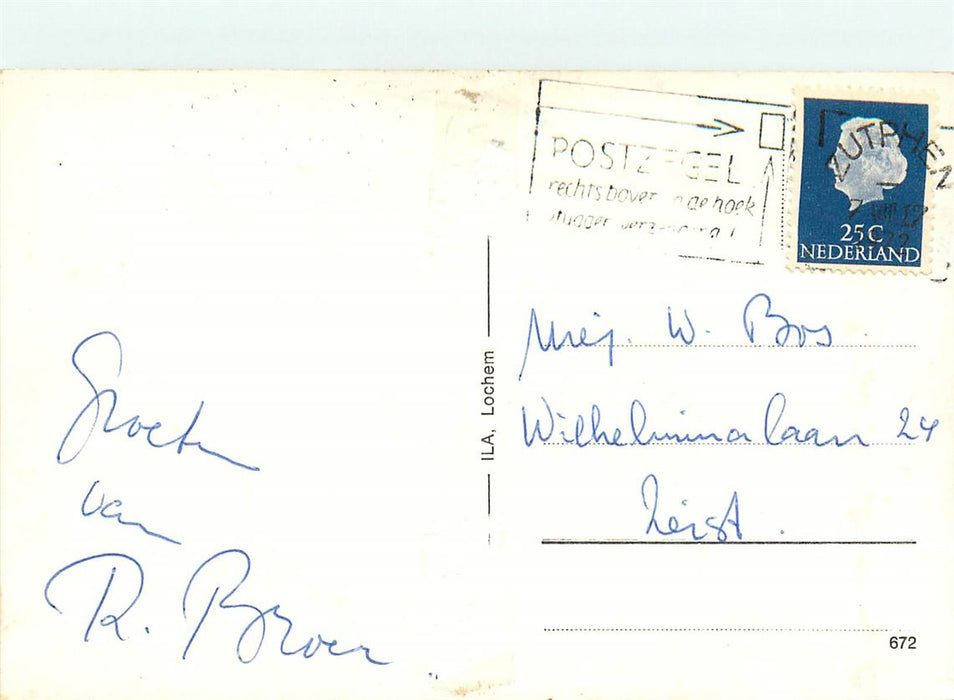 POSTZEGEL
rechtsboven in de hoek
vlugger verzending!
ZUTPHEN
25C
NEDERLAND
Groeten
van
R. Broer
ILA, Lochem
Mej. W. Bos
Wilhelminalaan 24
Zeist.
672